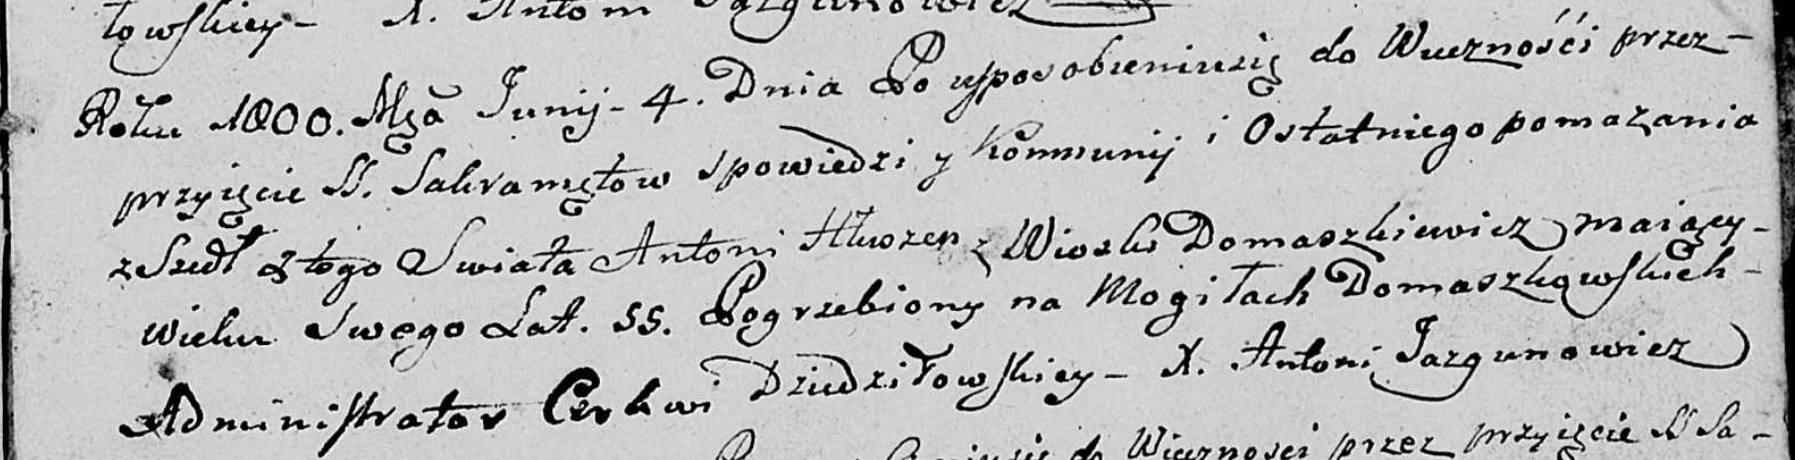 łowskiey – X. Antoni Jazgunowicz
Roku 1800. Mcą Junij – 4. Dnia Po usposobieniusię do Wieczności przez –
przyięcie SS. Sakramętow spowiedzi y Kommunij i Ostatniego pomazania
z Szedł z tego Swiata Antoni z Wioski Domaszkiewicz maiący –
wieku Swego Lat. 55. Pogrzebiony na Mogiłach Domaszkowskich –
Administrator Cerkwi Dziedziłowskiey – X. Antoni Jazgunowicz
do Wieczności przez przyięcie SS Sa –